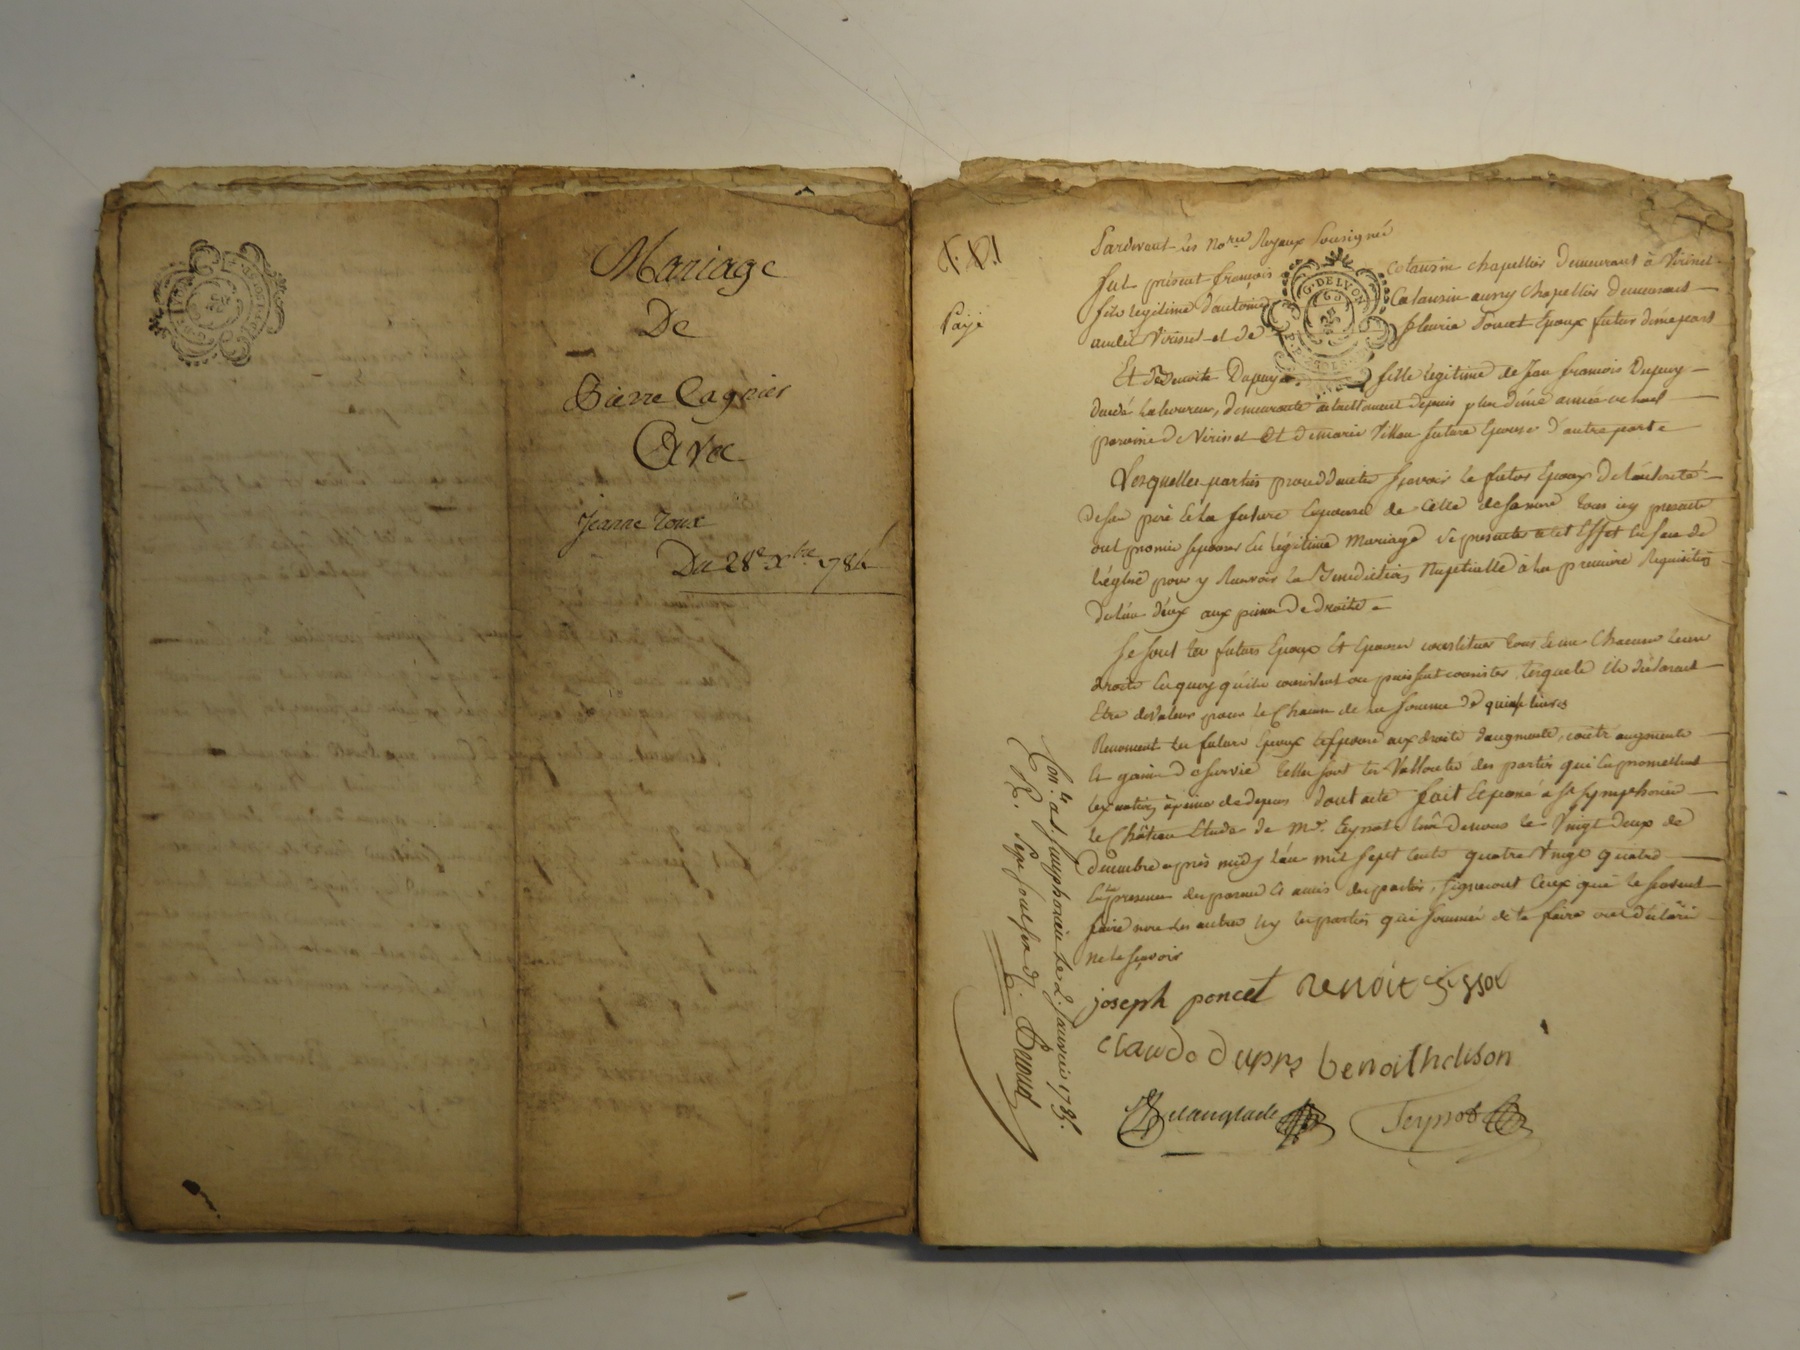 Mariage
De
Pierre Cagnier
Avec
Jeanne Roux
Du 28e Xbre 1784
Payé
Pardevant les Nore Royaux Soussigné
fut présent françois Cotansin chapellier demeurant à Virinel
fils légitime d'antoine Cotansin aussy chapellier demeurant
audit Virinel et de fleurie Poncet Epoux futur d'une part
Et Benoite Dupuy fille legitime de Jean francois Dupuy
laboureur, demeurante actuellement depuis plus d'une année
paroisse de Virinel Et de marie future Epouse d'autre part
Lesquelles parties procedderite sçavoir le futur Epoux de l'autorité
de son pere Et la future Epouse de celle de sa mere tous icy presente
ont promis se prendre En légitime Mariage se presenter a cet Effet En face de
l'eglise pour y Recevoir la Benediction Nuptialle à la premiere Requisition
de l'un d'eux aux peines de droite
Se sont les futurs Epoux Et Epouse constitués tous Et un Chacun leurs
droits En quoy qu'ils consistent ou puissent consister, lesquels ils déclarent
Etre de valeur pour le Chacun de la somme de quinze livres
Renoncent les futurs Epoux Et Epouse aux droite d'augmente, contr'augmente
Et gain de survie telles sont les Vollontés des parties qui En promettent
Execution à peine de depens dont acte fait Et passé à St Symphorien
le Château Etude de Mr. Teynot l'un d'ieux le Vingt deux de
decembre après midy l'an mil sept cents quatre Vingt quatre
En presence des parens Et amis des parties, signeront Ceux qui le sçavent
faire non les autres ny les parties qui sommés de le faire ont déclaré
ne le sçavoir
joseph poncet Renoit
claude dupre benoit
delanglade Teynot
Con.lé à St Simphorien le 2. Janvier 1785.
R. sept